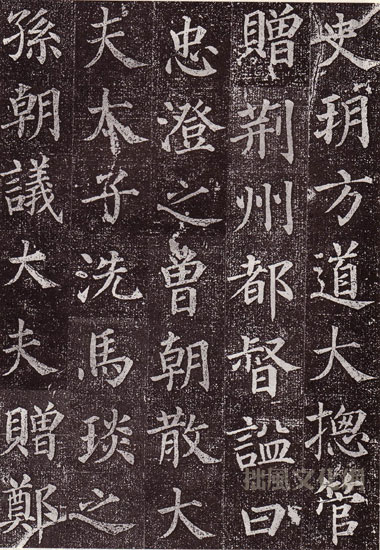 史朔方道大揔管
贈荊州都督謚曰
忠澄之曾朝散大
夫太子洗馬琰之
孫朝議大夫贈鄭
拙風文化網